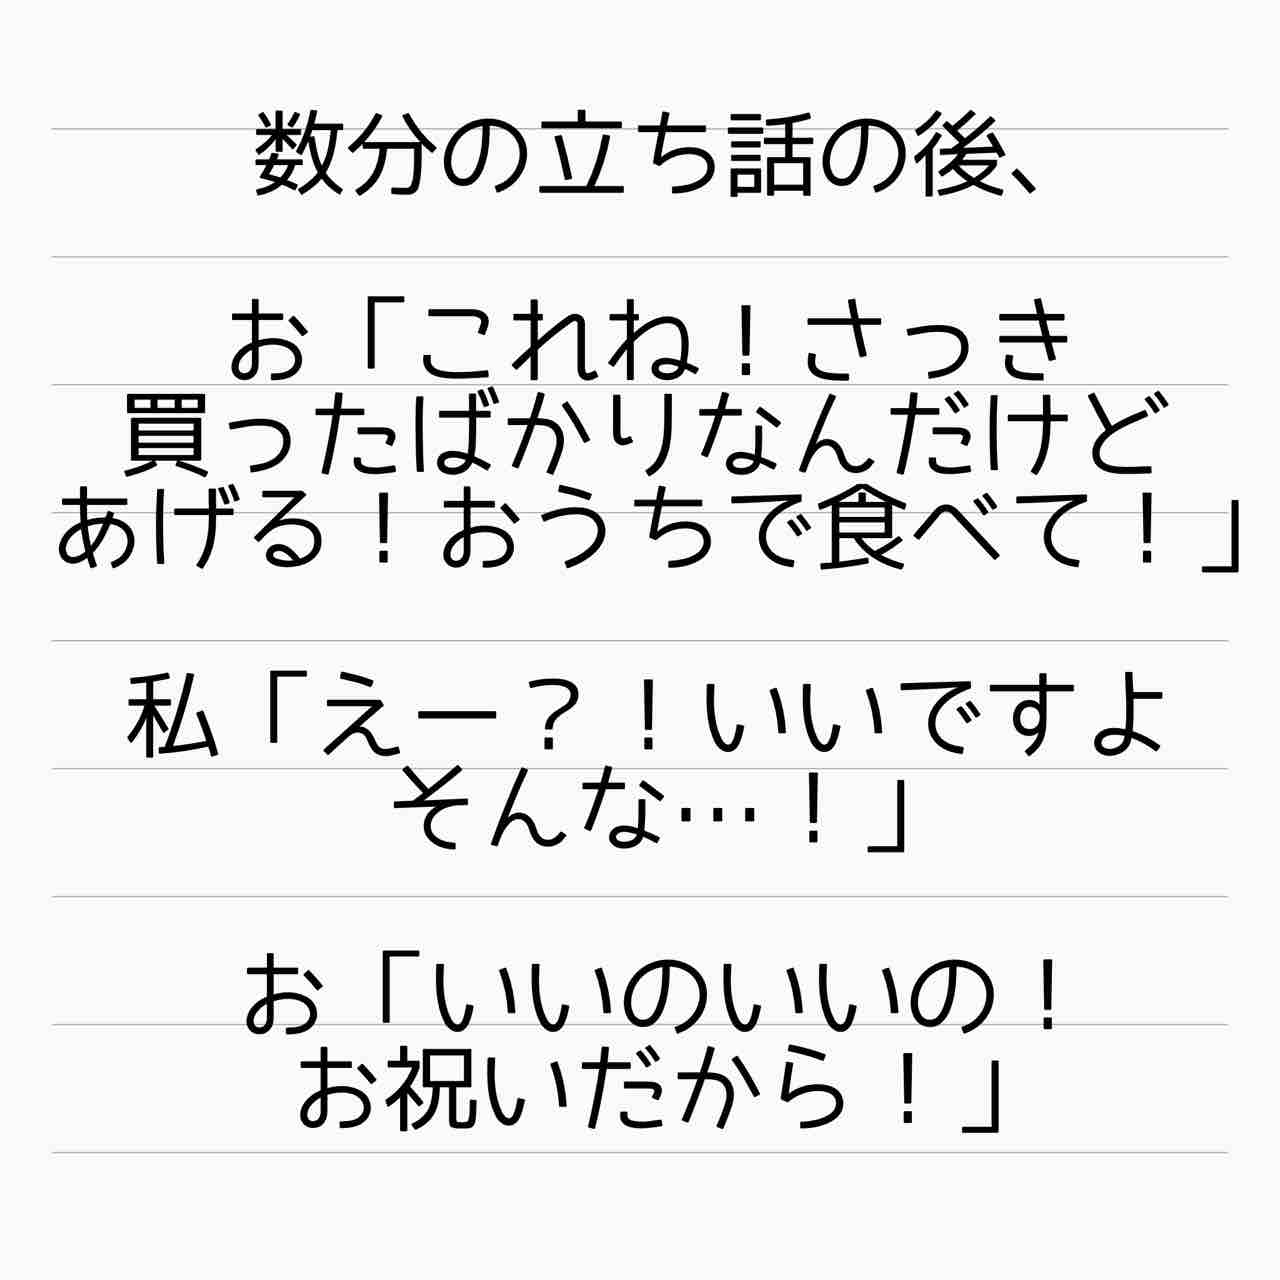 数分の立ち話の後、
お「これね！さっき
買ったばかりなんだけど
あげる！おうちで食べて！」
私「えー？！いいですよ
そんな…！」
お「いいのいいの！
お祝いだから！」